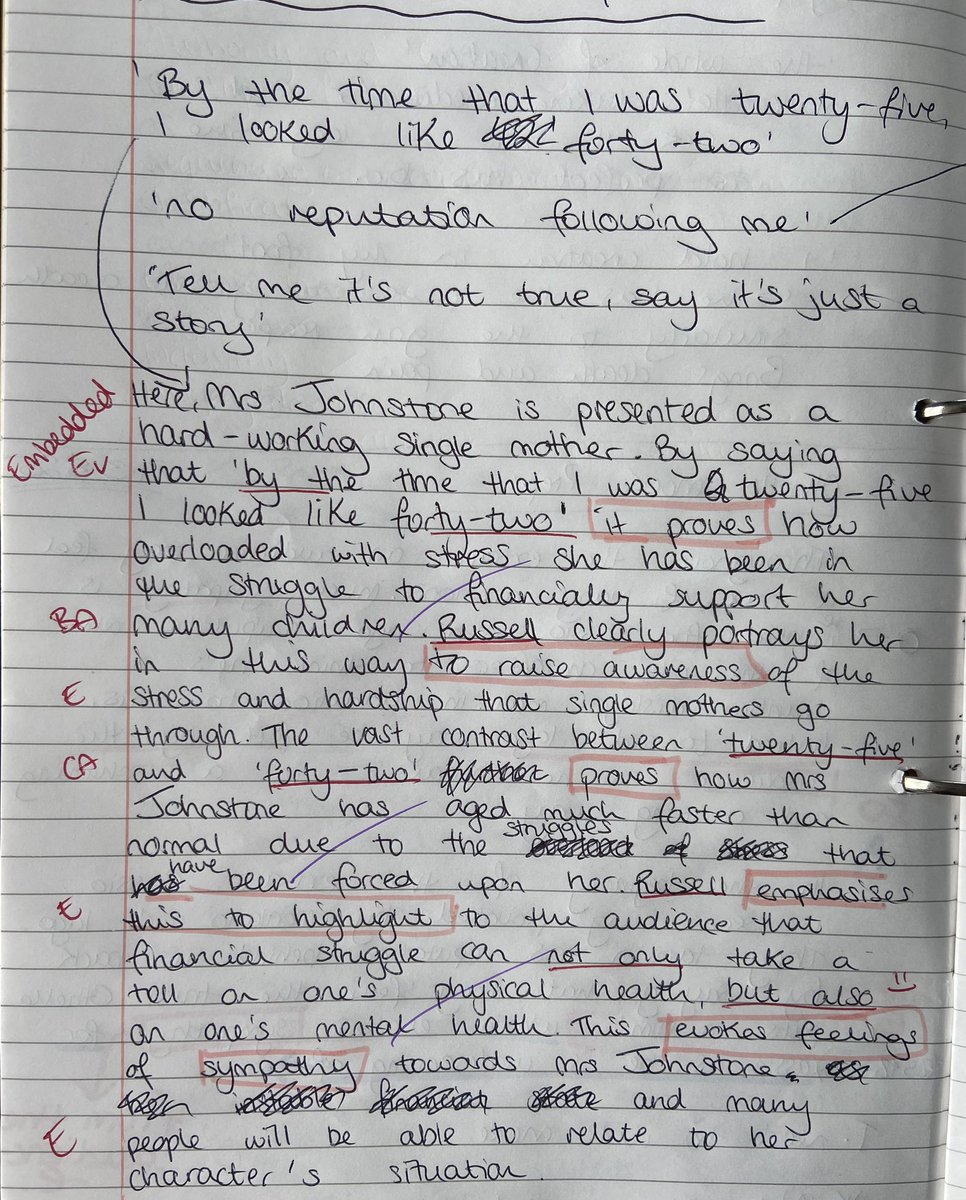 'By the time that I was twenty-five,
I looked like forty-two'
'no reputation following me'
'Tell me it's not true, say it's just a
story'
Here, Mrs Johnstone is presented as a
Embedded
hard-working single mother. By saying
Ev
that 'by the time that I was twenty-five
I looked like forty-two' it proves how
overloaded with stress she has been in
the struggle to financially support her
BA
many children. Russell clearly portrays her
in this way to raise awareness of the
E
stress and hardship that single mothers go
through. The vast contrast between 'twenty-five'
CA
and 'forty-two' proves how mrs
Johnstone has aged much faster than
normal due to the struggles that
have been forced upon her. Russell emphasises
E
this to highlight to the audience that
financial struggle can not only take a
toll on one's physical health, but also
on one's mental health. This evokes feelings
of sympathy towards mrs Johnstone
and many
E
people will be able to relate to her
character's situation.